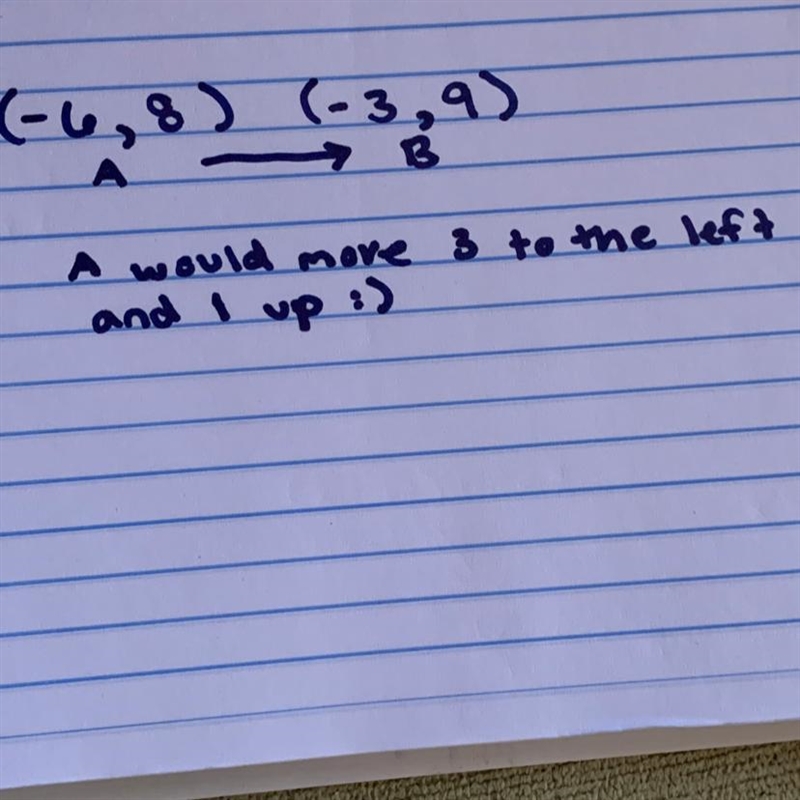 (-6,8) (-3,9)
A → B
A would move 3 to the left
and 1 up :)